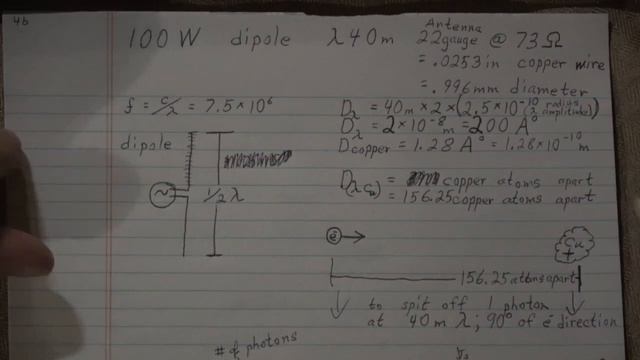 4b
100 W dipole λ 40m Antenna 22 gauge @ 73 Ω
= .0253 in copper wire
= .996 mm diameter
f = c/λ = 7.5 × 10⁶
Dλ = 40m × 2 × (2.5 × 10⁻¹⁰ radius (2 amplitudes))
Dλ = 2 × 10⁻⁸ m = 200 A°
Dcopper = 1.28 A° = 1.28 × 10⁻¹⁰ m
dipole
1/2 λ
D(λ Cu) = copper atoms apart
= 156.25 copper atoms apart
e
Cu
+
156.25 atoms apart
to spit off 1 photon
at 40m λ; 90° of e direction
# of photons